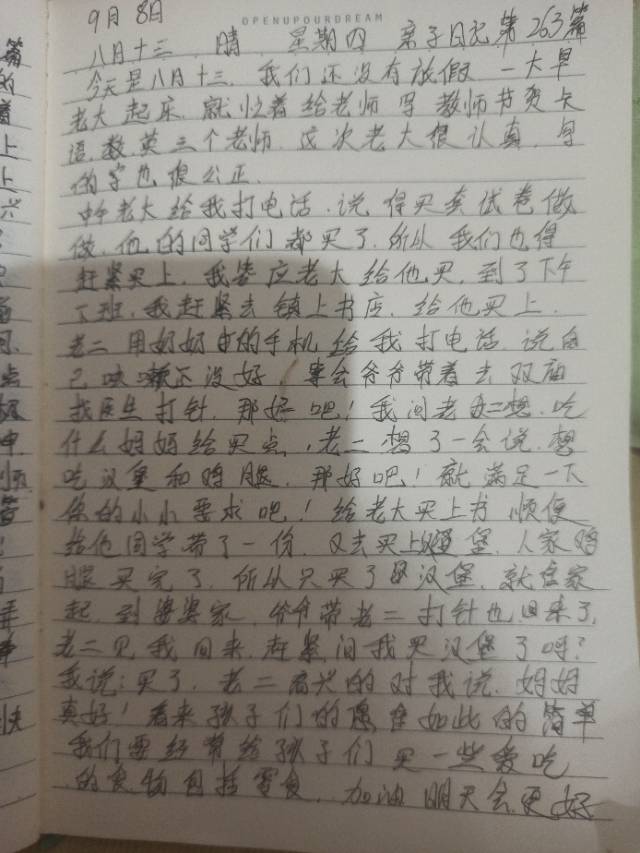 OPENUPOURDREAM
9月8日
八月十三 晴 星期四 亲子日记第263篇
今天是八月十三,我们还没有放假 一大早
老大起床,就忙着给老师写教师节贺卡
语.数.英三个老师.这次老大很认真,写
的字也很公正.
中午老大给我打电话.说得买套试卷做
做.他的同学们都买了.所以我们也得
赶紧买上.我答应老大给他买.到了下午
下班.我赶紧去镇上书店.给他买上.
老二用奶奶的手机给我打电话.说自
己咳嗽还没好 爷爷带着去双庙
找医生打针.那好吧!我问老二想.吃
什么妈妈给买点.老二想了一会说.想
吃汉堡和鸡腿.那好吧!就满足一下
你的小小要求吧!给老大买上书 顺便
给他同学带了一份.又去买上汉堡.人家鸡
腿买完了.所以只买了汉堡.就回家
起.到婆婆家.爷爷带老二打针也回来了,
老二见我回来.赶紧问我买汉堡了吗?
我说:买了.老二高兴的对我说.妈妈
真好!看来孩子们的愿望如此的简单
我们要经常给孩子们买一些爱吃
的食物包括零食.加油明天会更好
篇
的
上
上
点
中
师
答
快